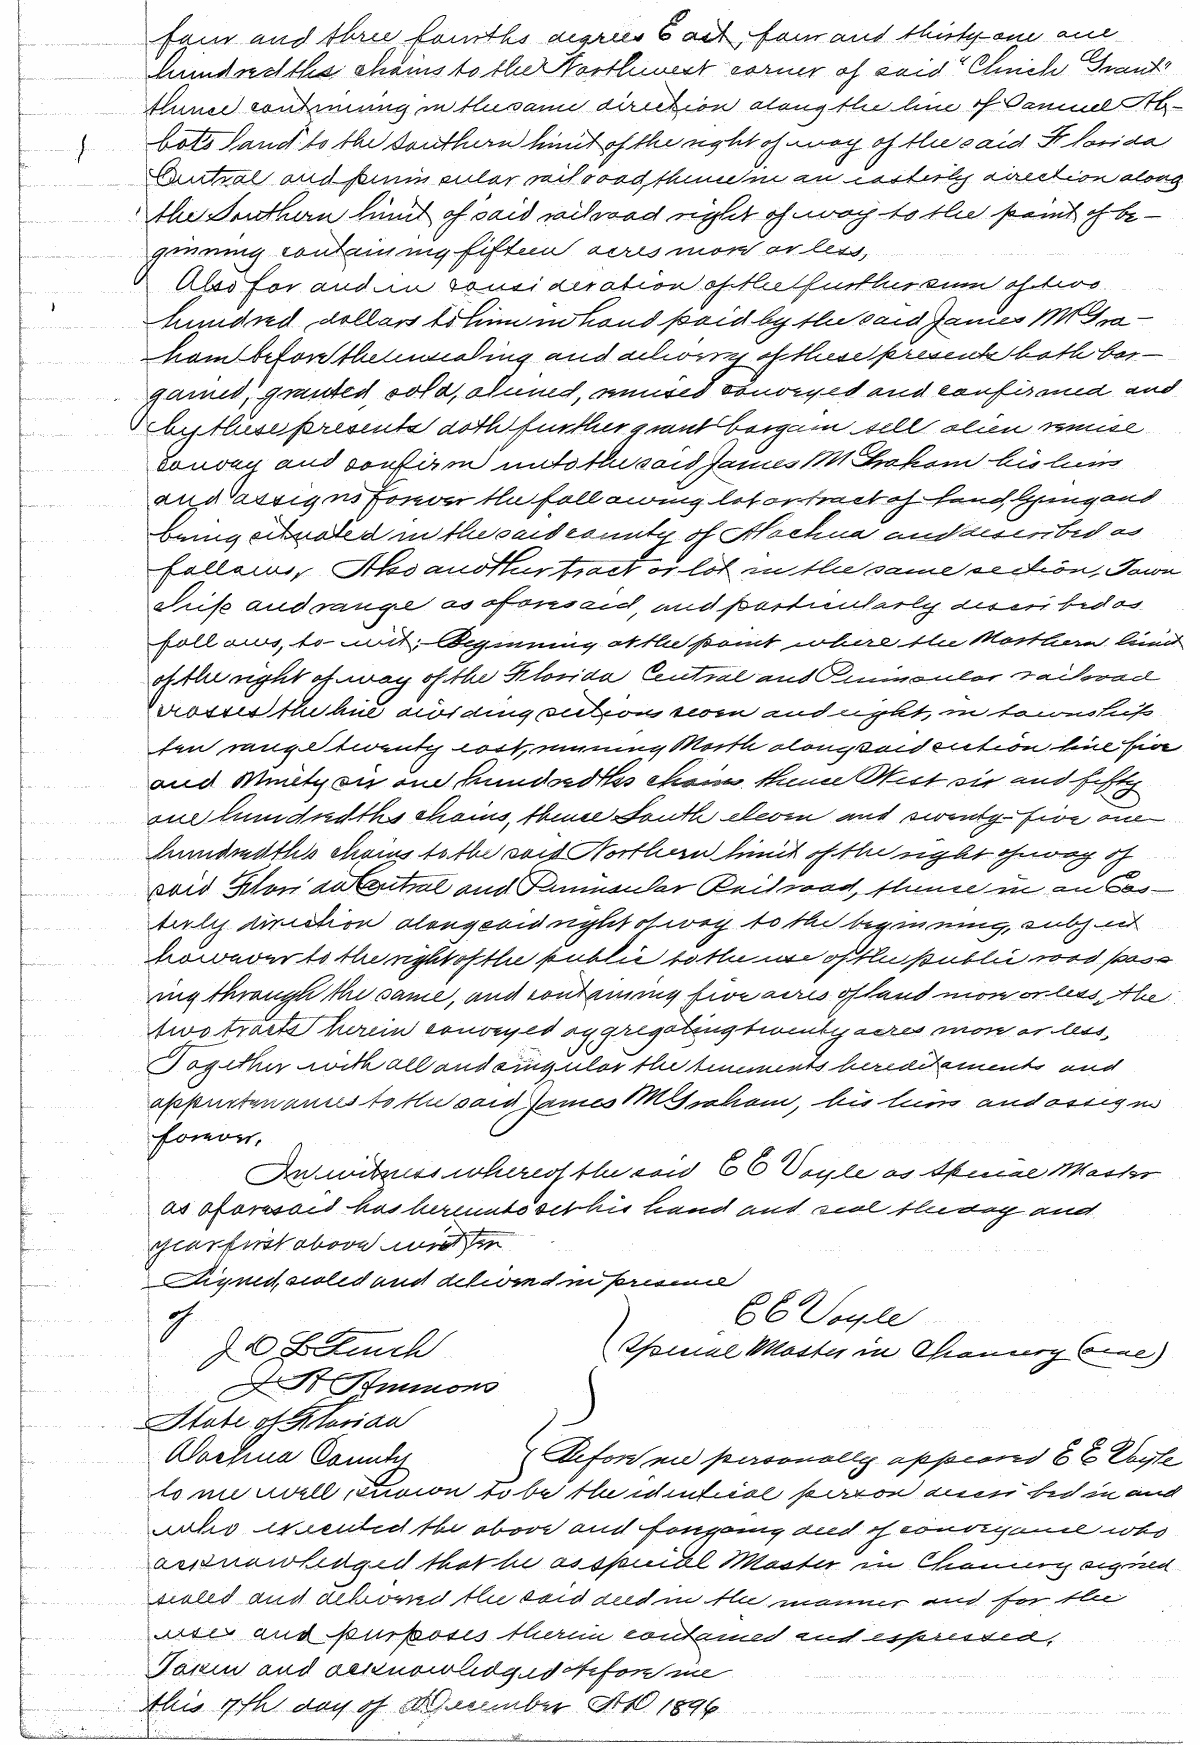 four and three fourths degrees East, four and thirty one one
hundredths chains to the Northwest corner of said "Chrich Grant"
thence continuing in the same direction along the line of Samuel Ab-
bots land to the Southern limit of the right of way of the said Florida
Central and peninsular railroad, thence in an easterly direction along
the Southern limit of said railroad right of way to the point of be-
ginning containing fifteen acres more or less,
Also for and in consideration of the further sum of two
hundred dollars to him in hand paid by the said James M Gra-
ham before the ensealing and delivery of these presents hath bar-
gained, granted, sold, aliened, remised conveyed and confirmed and
by these presents doth further grant bargain sell alien remise
convey and confirm unto the said James M Graham his heirs
and assigns forever the following lot or tract of land lying and
being situated in the said county of Alachua and described as
follows, Also another tract or lot in the same section, Town
ship and range as aforesaid, and particularly described as
follows, to-wit; Beginning at the point where the Northern limit
of the right of way of the Florida Central and Peninsular railroad
crosses the line dividing sections seven and eight, in township
ten range twenty east, running North along said section line five
and Ninety six one hundredths chains thence West six and fifty
one hundredths chains, thence South eleven and twenty-five one
hundredths chains to the said Northern limit of the right of way of
said Florida Central and Peninsular Railroad, thence in an Eas-
terly direction along said right of way to the beginning, subject
however to the right of the public to the use of the public road pass
ing through the same, and containing five acres of land more or less, the
two tracts herein conveyed aggregating twenty acres more or less,
Together with all and singular the tenements hereditaments and
appurtenances to the said James M Graham, his heirs and assigns
forever.
In witness whereof the said E E Voyle as Special Master
as aforesaid has hereunto set his hand and seal the day and
year first above written
Signed, sealed and delivered in presence
of
E E Voyle
J D L Finch
Special Master in Chancery (seal)
J A Ammons
State of Florida
Alachua County
Before me personally appeared E E Voyle
to me well known to be the identical person described in and
who executed the above and foregoing deed of conveyance who
acknowledged that he as special Master in Chancery signed
sealed and delivered the said deed in the manner and for the
uses and purposes therein contained and expressed.
Taken and acknowledged before me
this 7th day of December AD 1896